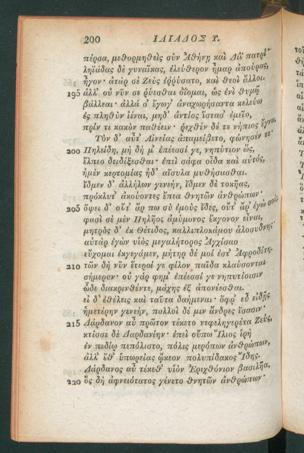 200 ΙΛΙΑΔΟΣ Υ.
πέρσα, μεθορμηθεὶς σὺν Ἀθήνῃ καὶ Διῒ πατρί·
ληϊάδας δὲ γυναῖκας, ἐλεύθερον ἦμαρ ἀπούρας,
ἦγον· ἀτὰρ σὲ Ζεὺς ἐῤῥύσατο, καὶ θεοὶ ἄλλοι·
195 ἀλλ' οὐ νῦν σε ῥύεσθαι ὀΐομαι, ὡς ἐνὶ θυμῷ
βάλλεαι· ἀλλά σ' ἔγωγ' ἀναχωρήσαντα κελεύω
ἐς πληθὺν ἰέναι, μηδ' ἀντίος ἵστασ' ἐμεῖο,
πρίν τι κακὸν παθέειν· ῥεχθὲν δέ τε νήπιος ἔγνω.
Τὸν δ' αὖτ' Αἰνείας ἀπαμείβετο, φώνησέν τε·
200 Πηλείδη, μὴ δή μ' ἐπέεσσί γε, νηπύτιον ὣς,
ἔλπεο δειδίξεσθαι· ἐπεὶ σάφα οἶδα καὶ αὐτὸς,
ἠμὲν κερτομίας ἠδ' αἴσυλα μυθήσασθαι.
ἴδμεν δ' ἀλλήλων γενεὴν, ἴδμεν δὲ τοκῆας,
πρόκλυτ' ἀκούοντες ἔπεα θνητῶν ἀνθρώπων·
205 ὄψει δ' οὔτ' ἄρ πω σὺ ἐμοὺς ἴδες, οὔτ' ἄρ' ἐγὼ σούς.
φασὶ σὲ μὲν Πηλῆος ἀμύμονος ἔκγονον εἶναι,
μητρὸς δ' ἐκ Θέτιδος, καλλιπλοκάμου ἁλοσύδνης·
αὐτὰρ ἐγὼν υἱὸς μεγαλήτορος Ἀγχίσαο
εὔχομαι ἐκγεγάμεν, μήτηρ δέ μοί ἐστ' Ἀφροδίτη·
210 τῶν δὴ νῦν ἕτεροί γε φίλον παῖδα κλαύσονται
σήμερον· οὐ γάρ φημ' ἐπέεσσί γε νηπυτίοισιν
ὧδε διακρινθέντε, μάχης ἒξ ἀπονέεσθαι.
εἰ δ' ἐθέλεις καὶ ταῦτα δαήμεναι· ὄφρ' εὖ εἰδῇς
ἡμετέρην γενεὴν, πολλοὶ δέ μιν ἄνδρες ἴσασιν·
215 Δάρδανον αὖ πρῶτον τέκετο νεφεληγερέτα Ζεύς,
κτίσσε δὲ Δαρδανίην· ἐπεὶ οὔπω Ἴλιος ἱρὴ
ἐν πεδίῳ πεπόλιστο, πόλις μερόπων ἀνθρώπων,
ἀλλ' ἔθ' ὑπωρείας ᾤκεον πολυπίδακος Ἴδης.
Δάρδανος αὖ τέκεθ' υἱὸν Ἐριχθόνιον βασιλῆα,
220 ὃς δὴ ἀφνειότατος γένετο θνητῶν ἀνθρώπων·